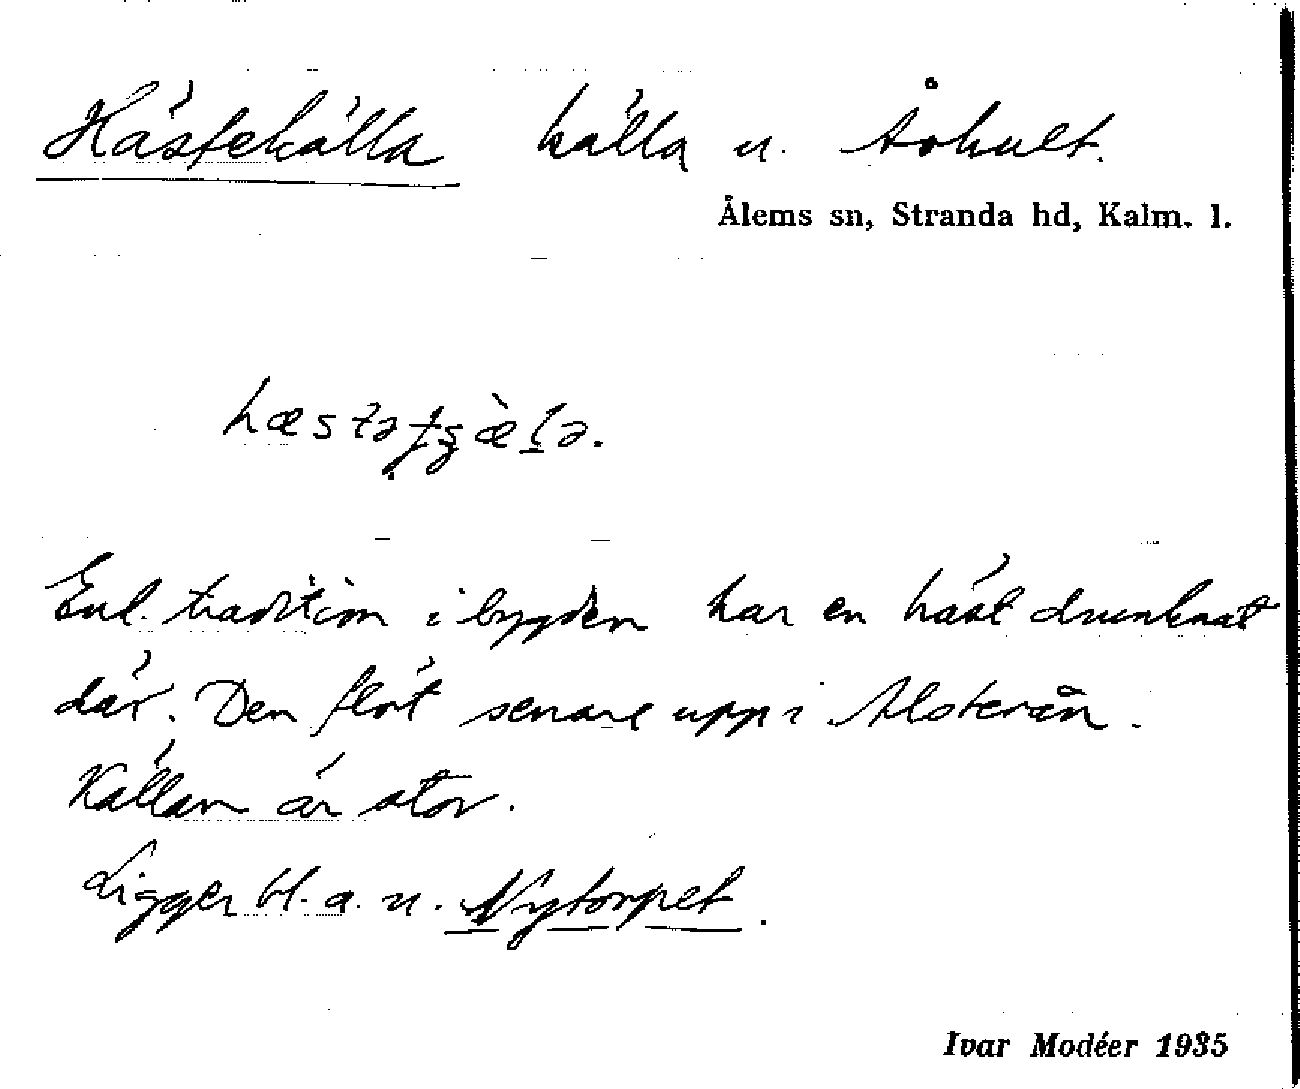 Hästekälla källa u. Åkult.
Ålems sn, Stranda hd, Kalm. l.
Enl. tradition i bygden har en häst drunknat
där. Den flöt senare upp i Alsterån.
Källan är stor.
Ligger bl. a. u. Nytorpet.
Ivar Modéer 1935